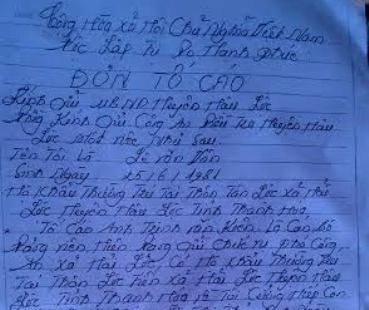 Cộng Hòa Xã Hội Chủ Nghĩa Việt Nam
Độc Lập Tự Do Hạnh Phúc
ĐƠN TỐ CÁO
Kính Gửi UBND Huyện Hậu Lộc
Kính Gửi Công An Điều Tra Huyện Hậu
Lộc
Tên Tôi Là Lê Văn Dân
Sinh Ngày 15/6/1981
Hộ Khẩu Thường Trú Tại Thôn Tân Lộc Xã Hải
Lộc Huyện Hậu Lộc Tỉnh Thanh Hóa
Tố Cáo Anh Trịnh Văn Kiên Là Cán Bộ
Đảng Viên Hiện Đang Giữ Chức Vụ Phó Công
An Xã Hải Lộc Có Hộ Khẩu Thường Trú
Tại Thôn Lộc Tiến Xã Hải Lộc Huyện Hậu
Lộc Tỉnh Thanh Hóa Cưỡng